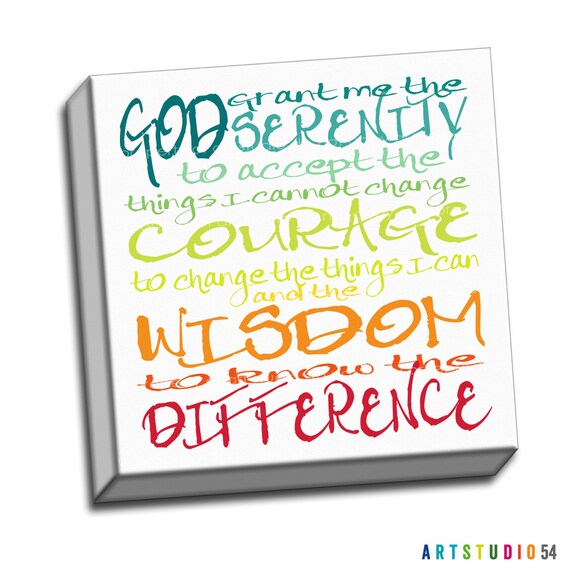 GOD grant me the
SERENITY
to accept the
things I cannot change
COURAGE
to change the things I can
and the
WISDOM
to know the
DIFFERENCE
ARTSTUDIO54